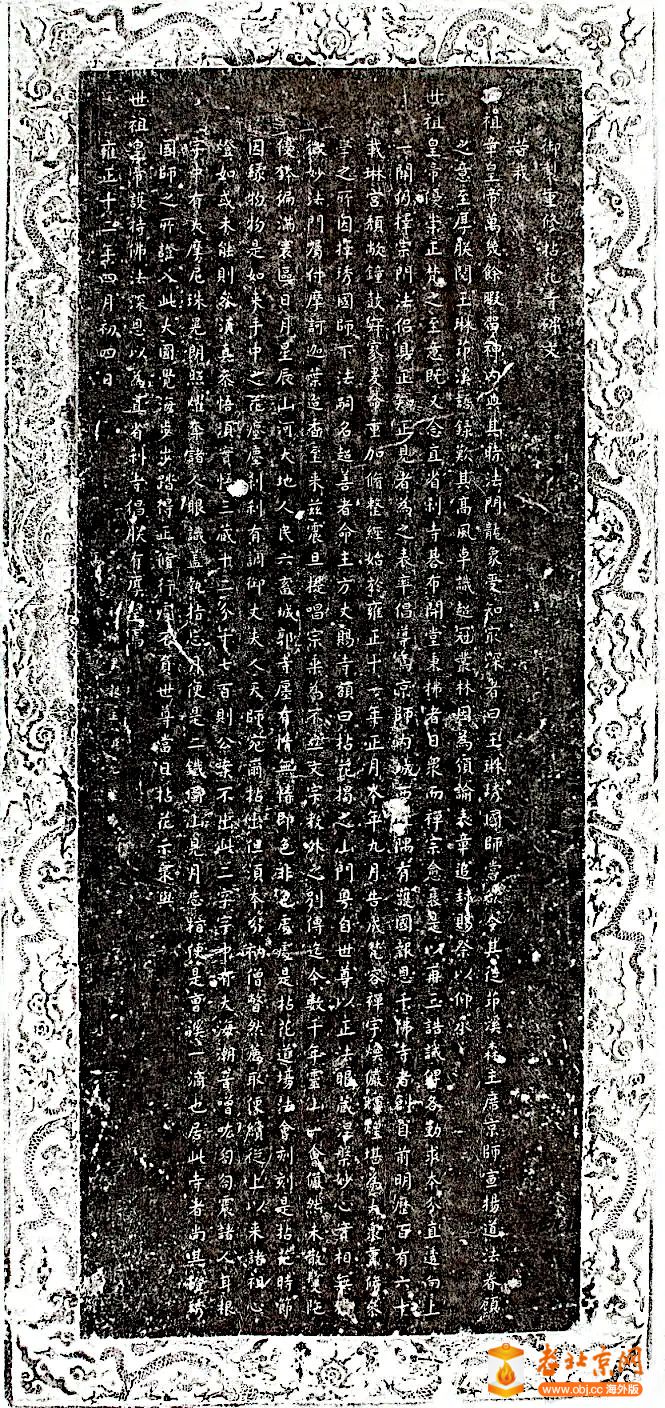 御製重修拈花寺碑文
昔我
世祖章皇帝萬幾餘暇留神內典其時法門龍象受知最深者曰玉琳琇國師當敕令其徒茆溪森主席京師宣揚道法眷顧
之意至厚朕閱玉琳茆溪語錄歎其高風卓識超冠叢林因為頒諭表章追封賜祭以仰承
世祖皇帝優崇正教之至意既又念直省剎寺碁布開堂秉拂者日眾而禪宗愈衰是以再三誥誡俾各勤求本分直透向上
一關猶擇宗門法侶具正知正見者為之表率倡導焉京師內城西北隅有護國報恩千佛寺者創自前明歷百有六十
載琳宮頹敝鐘鼓寂寥爰命重加修整經始於雍正十一年正月本年九月告成梵容禪宇煥儼輝煌堪為大眾薰修祭
學之所因擇琇國師下法嗣名超善者命主方丈賜寺額曰拈花揭之山門粵自世尊以正法眼藏涅槃妙心實相無相
微妙法門囑付摩訶迦葉迨香至來茲震旦提唱宗乘為不立文字教外之別傳迄今數千年靈山一會儼然未散雙陀
優鉢徧滿寰區日月星辰山河大地人民六畜城郭寺廬有情無情即色非色處處是拈花道場法會刻刻是拈花時節
因緣物物是如來手中之花塵塵剎剎有調御丈夫人天師宛爾拈出但須本分衲僧瞥然薦取便續從上以來諸祖心
燈如或未能則各須真參悟須實悟三藏十二分千七百則公案不出此二字字中有大海潮音噌吰匉訇震諸人耳根
字中有大摩尼珠晃朗照耀奪諸人眼識盍執指忘月便是二鐵圍山見月忘指便是曹溪一滴也居此寺者尚其體琇
國師之所證入此大圓覺海步步踏得正修行當不負世尊當日拈花示眾與
世祖皇帝護持佛法深恩以為直省剎寺倡朕有厚望焉
雍正十二年四月初四日
老北京网
www.obj.cc 海外版